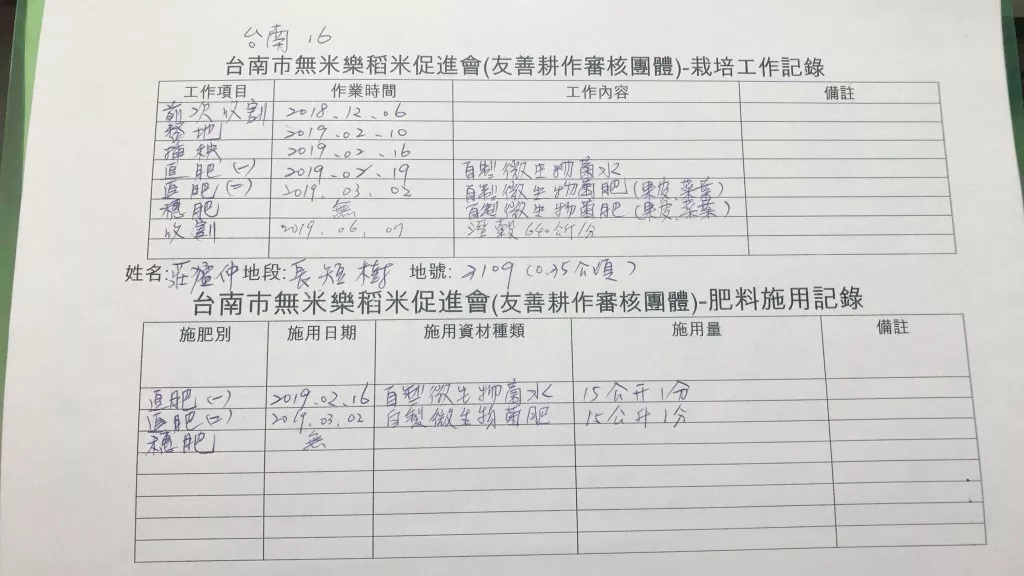 台南 16
台南市無米樂稻米促進會(友善耕作審核團體)-栽培工作記錄
工作項目 作業時間 工作內容 備註
前次收割 2018.12.06
整地 2019.02.10
插秧 2019.02.16
追肥(一) 2019.02.19 自製微生物菌水
追肥(二) 2019.03.02 自製微生物菌肥(果皮.菜葉)
穗肥 無 自製微生物菌肥(果皮.菜葉)
收割 2019.06.07 溼穀640公斤/分
姓名:莊 仲 地段:長短樹 地號: 3109 (0.35公頃)
台南市無米樂稻米促進會(友善耕作審核團體)-肥料施用記錄
施肥別 施用日期 施用資材種類 施用量 備註
追肥(一) 2019.02.16 自製微生物菌水 15公升1分
追肥(二) 2019.03.02 自製微生物菌肥 15公升1分
穗肥 無